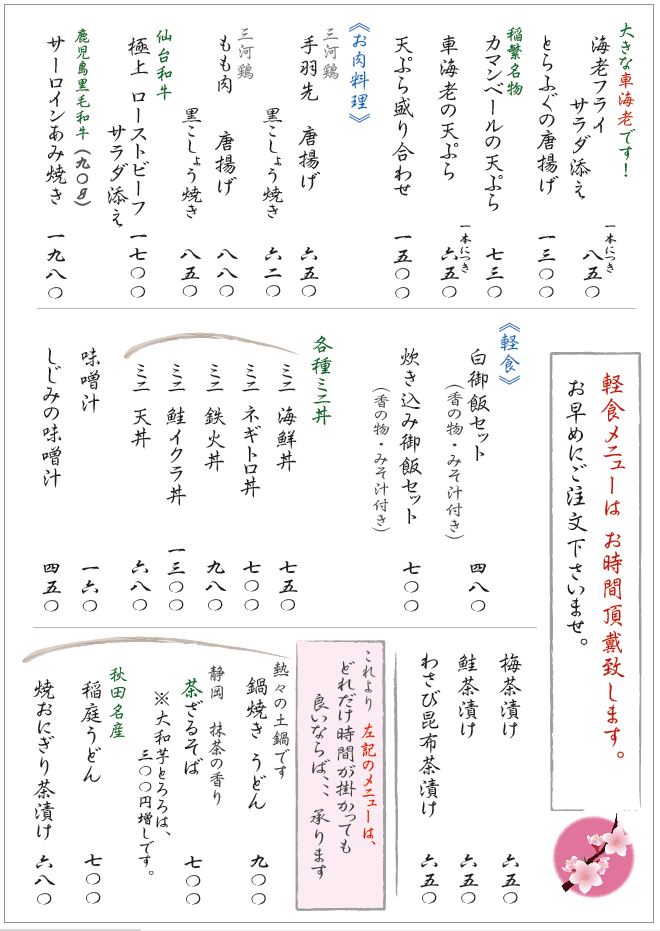 大きな車海老です！
海老フライ
サラダ添え
一本につき
八五〇
とらふぐの唐揚げ
一三〇〇
稲繁名物
カマンベールの天ぷら
七三〇
車海老の天ぷら
一本につき
六五〇
天ぷら盛り合わせ
一五〇〇
《お肉料理》
三河鶏
手羽先 唐揚げ
六五〇
黒こしょう焼き
六二〇
三河鶏
もも肉 唐揚げ
八八〇
黒こしょう焼き
八五〇
仙台和牛
極上 ローストビーフ
サラダ添え
一七〇〇
鹿児島黒毛和牛(九〇g)
サーロインあみ焼き
一九八〇
軽食メニューは お時間頂戴致します。
お早めにご注文下さいませ。
《軽食》
白御飯セット
(香の物・みそ汁付き)
四八〇
炊き込み御飯セット
(香の物・みそ汁付き)
七〇〇
各種ミニ丼
ミニ 海鮮丼
七五〇
ミニ ネギトロ丼
七〇〇
ミニ 鉄火丼
九八〇
ミニ 鮭イクラ丼
一三〇〇
ミニ 天丼
六八〇
味噌汁
一六〇
しじみの味噌汁
四五〇
梅茶漬け
六五〇
鮭茶漬け
六五〇
わさび昆布茶漬け
六五〇
これより 左記のメニューは、
どれだけ時間が掛かっても
良いならば、、、 承ります
熱々の土鍋です
鍋焼き うどん
九〇〇
静岡 抹茶の香り
茶ざるそば
七〇〇
※大和芋とろろは、
三〇〇円増しです。
秋田名産
稲庭うどん
七〇〇
焼おにぎり茶漬け
六八〇